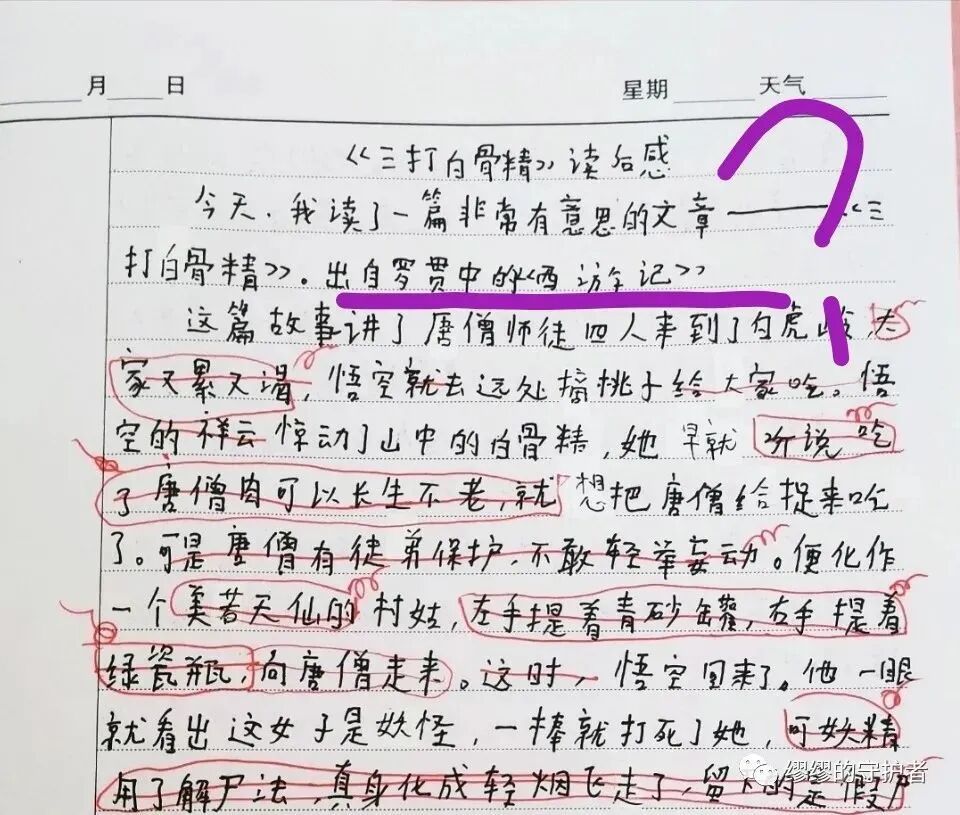 月 日 星期 天气
《三打白骨精》读后感
今天,我读了一篇非常有意思的文章——《三
打白骨精》。出自罗贯中的《西游记》
这篇故事讲了唐僧师徒四人来到了白虎岭,大
家又累又渴,悟空就去远处摘桃子给大家吃。悟
空的祥云惊动了山中的白骨精,她早就听说吃
了唐僧肉可以长生不老,就想把唐僧给捉来吃
了。可是唐僧有徒弟保护,不敢轻举妄动。便化作
一个美若天仙的村姑,左手提着青砂罐,右手提着
绿瓷瓶,向唐僧走来。这时,悟空回来了。他一眼
就看出这女子是妖怪,一棒就打死了她,可妖精
用了解尸法,真身化成轻烟飞走了,留下的是假尸
缪缪的守护者